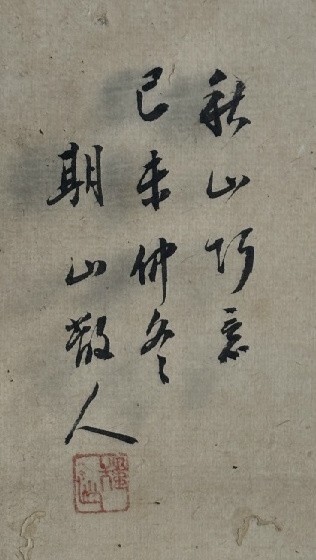 秋山意
己未仲冬
期山散人